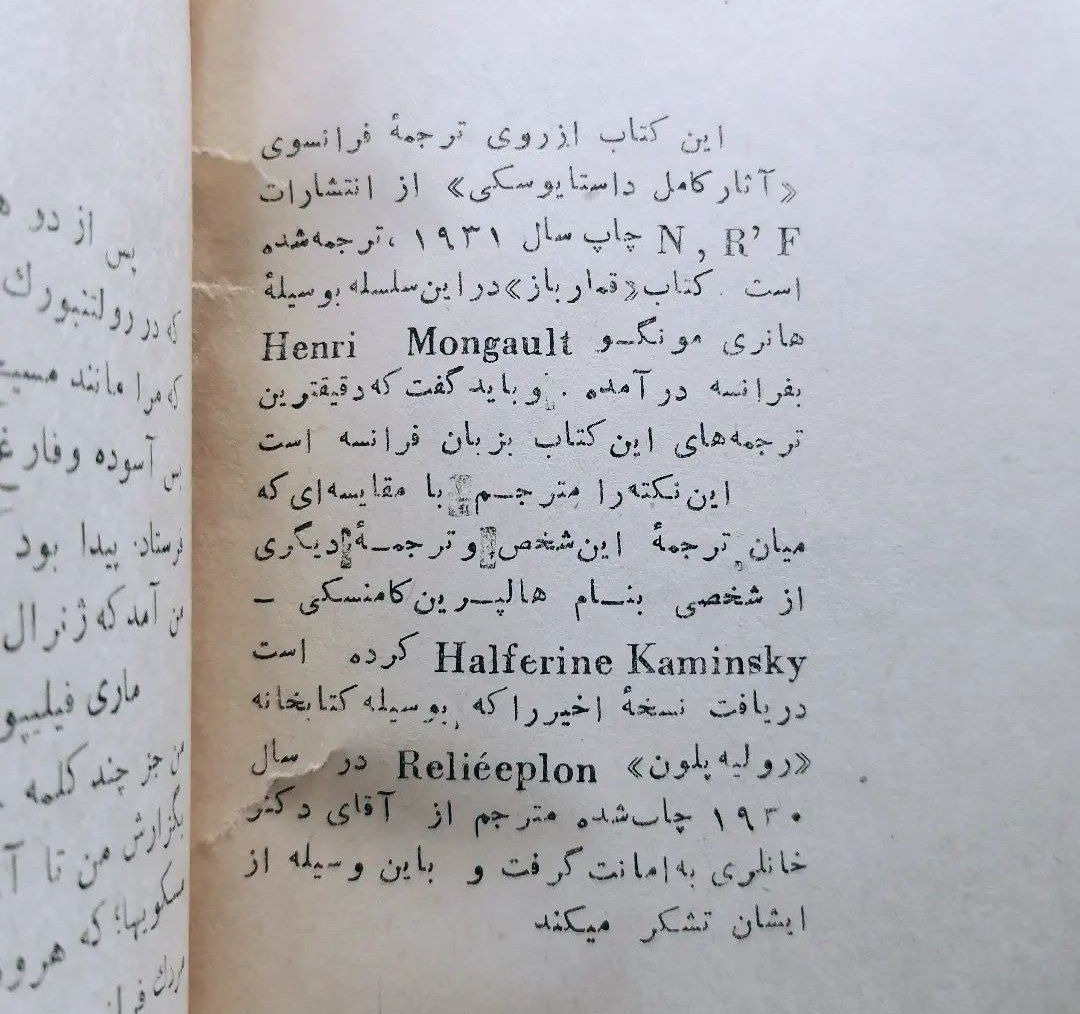 این کتاب ازروی ترجمهٔ فرانسوی
«آثار کامل داستایوسکی» از انتشارات
N , R’ F چاپ سال ۱۹۳۱ ، ترجمه شده
است . کتاب «قمار باز» در این سلسله بوسیلهٔ
هانری مونگـو Henri Mongault
بفرانسه در آمده . و باید گفت که دقیقترین
ترجمه‌های این کتاب بزبان فرانسه است
این نکته را مترجـم با مقایسه‌ای که
میان ترجمهٔ این شخص و ترجمـهٔ دیگری
از شخصی بنـام هالپـرین کامنسکی –
Halferine Kaminsky کرده است
دریافت نسخهٔ اخیر را که بوسیله کتابخانه
«رولیه پلون» Reliéeplon در سال
۱۹۳۰ چاپ شده مترجم از آقای دکتر
خانلری به امانت گرفت و باین وسیله از
ایشان تشکر میکند
پس از دو
که در رولتنبورك
که مرا مانند
پس آسوده وفار
فرستاد: پیدا بود
من آمد که ژنرال
ماری فیلیپو
من جز چند کلمه
بگزارش من تا
مسکویها؛ که هرو
مردك